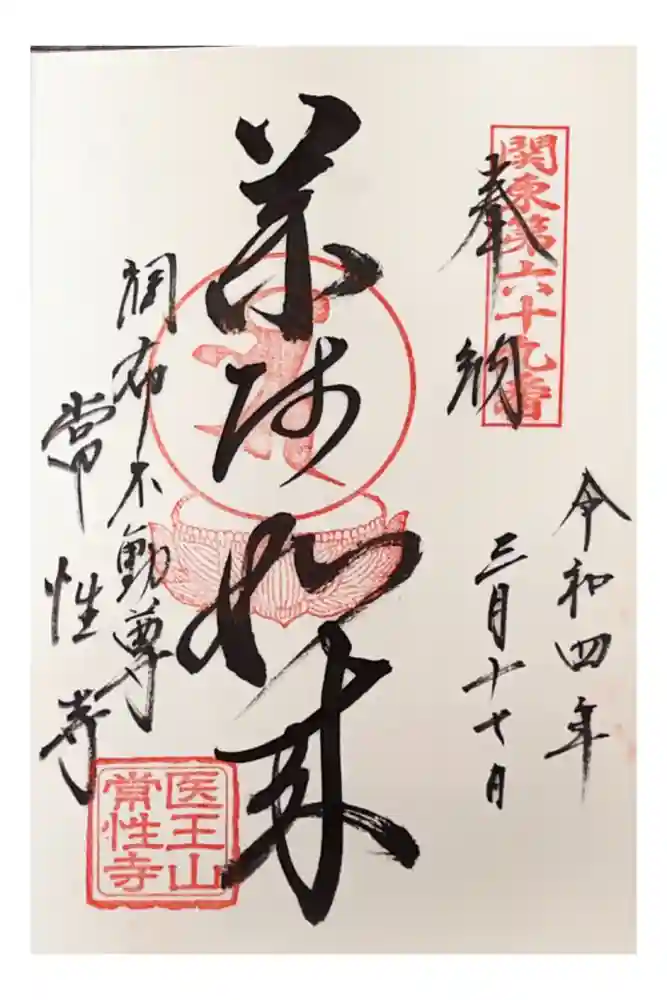 関東第六十九番
奉納
令和四年
三月十七日
薬师如来
調布不動尊
常性寺
医王山
常性寺